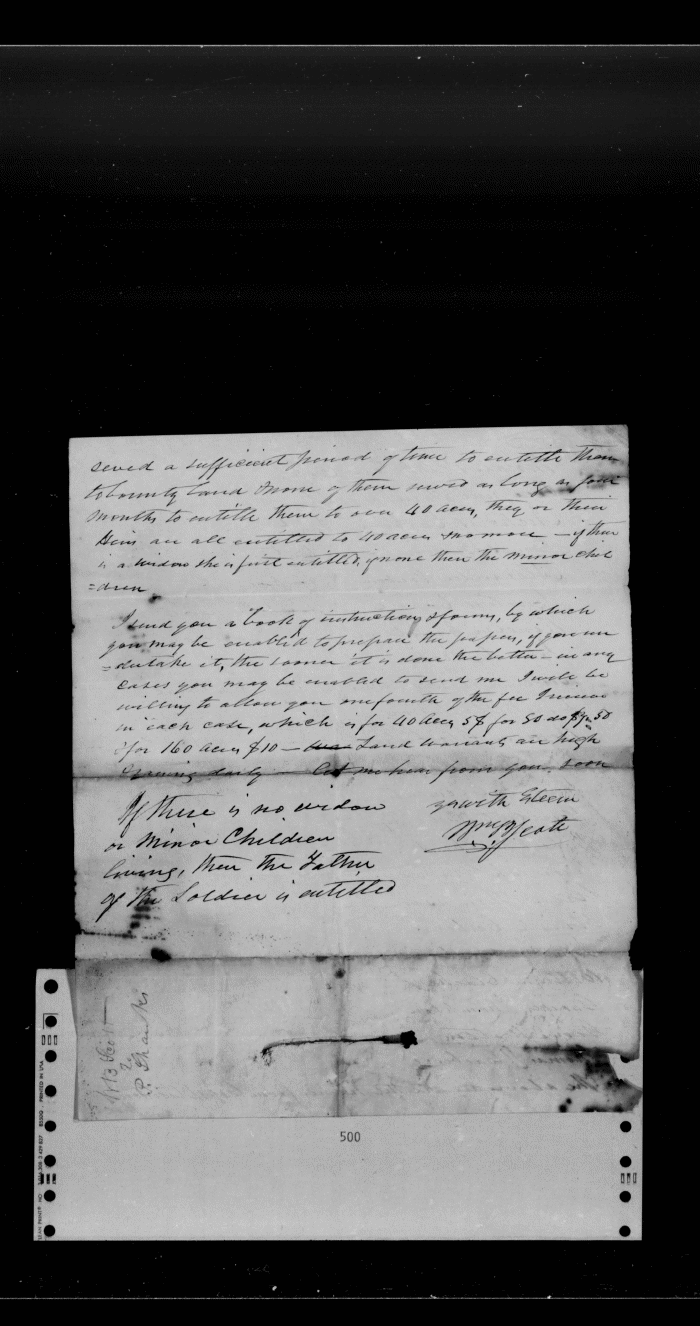 served a sufficient period of time to entitle them
to bounty land & none of them served as long as four
months to entitle them to over 40 acres, they or their
Heirs are all entitled to 40 acres & no more — if there
is a widow she is first entitled, if none then the minor chil
=dren
I send you a book of instructions & forms, by which
you may be enabled to prepare the papers, if you un
=dertake it, the sooner it is done the better — in any
cases you may be enabled to send me I will be
willing to allow you one fourth of the fee I receive
in each case, which is for 40 acres 5$ for 80 do $7.50
& for 160 acres $10 — Land warrants are high
& rising daily — Let me hear from you soon
If there is no widow
or minor Children
living, then the Father
of the Soldier is entitled
yrs with Esteem
Wm B Scott
P. Shanks
500
PRINTED IN USA